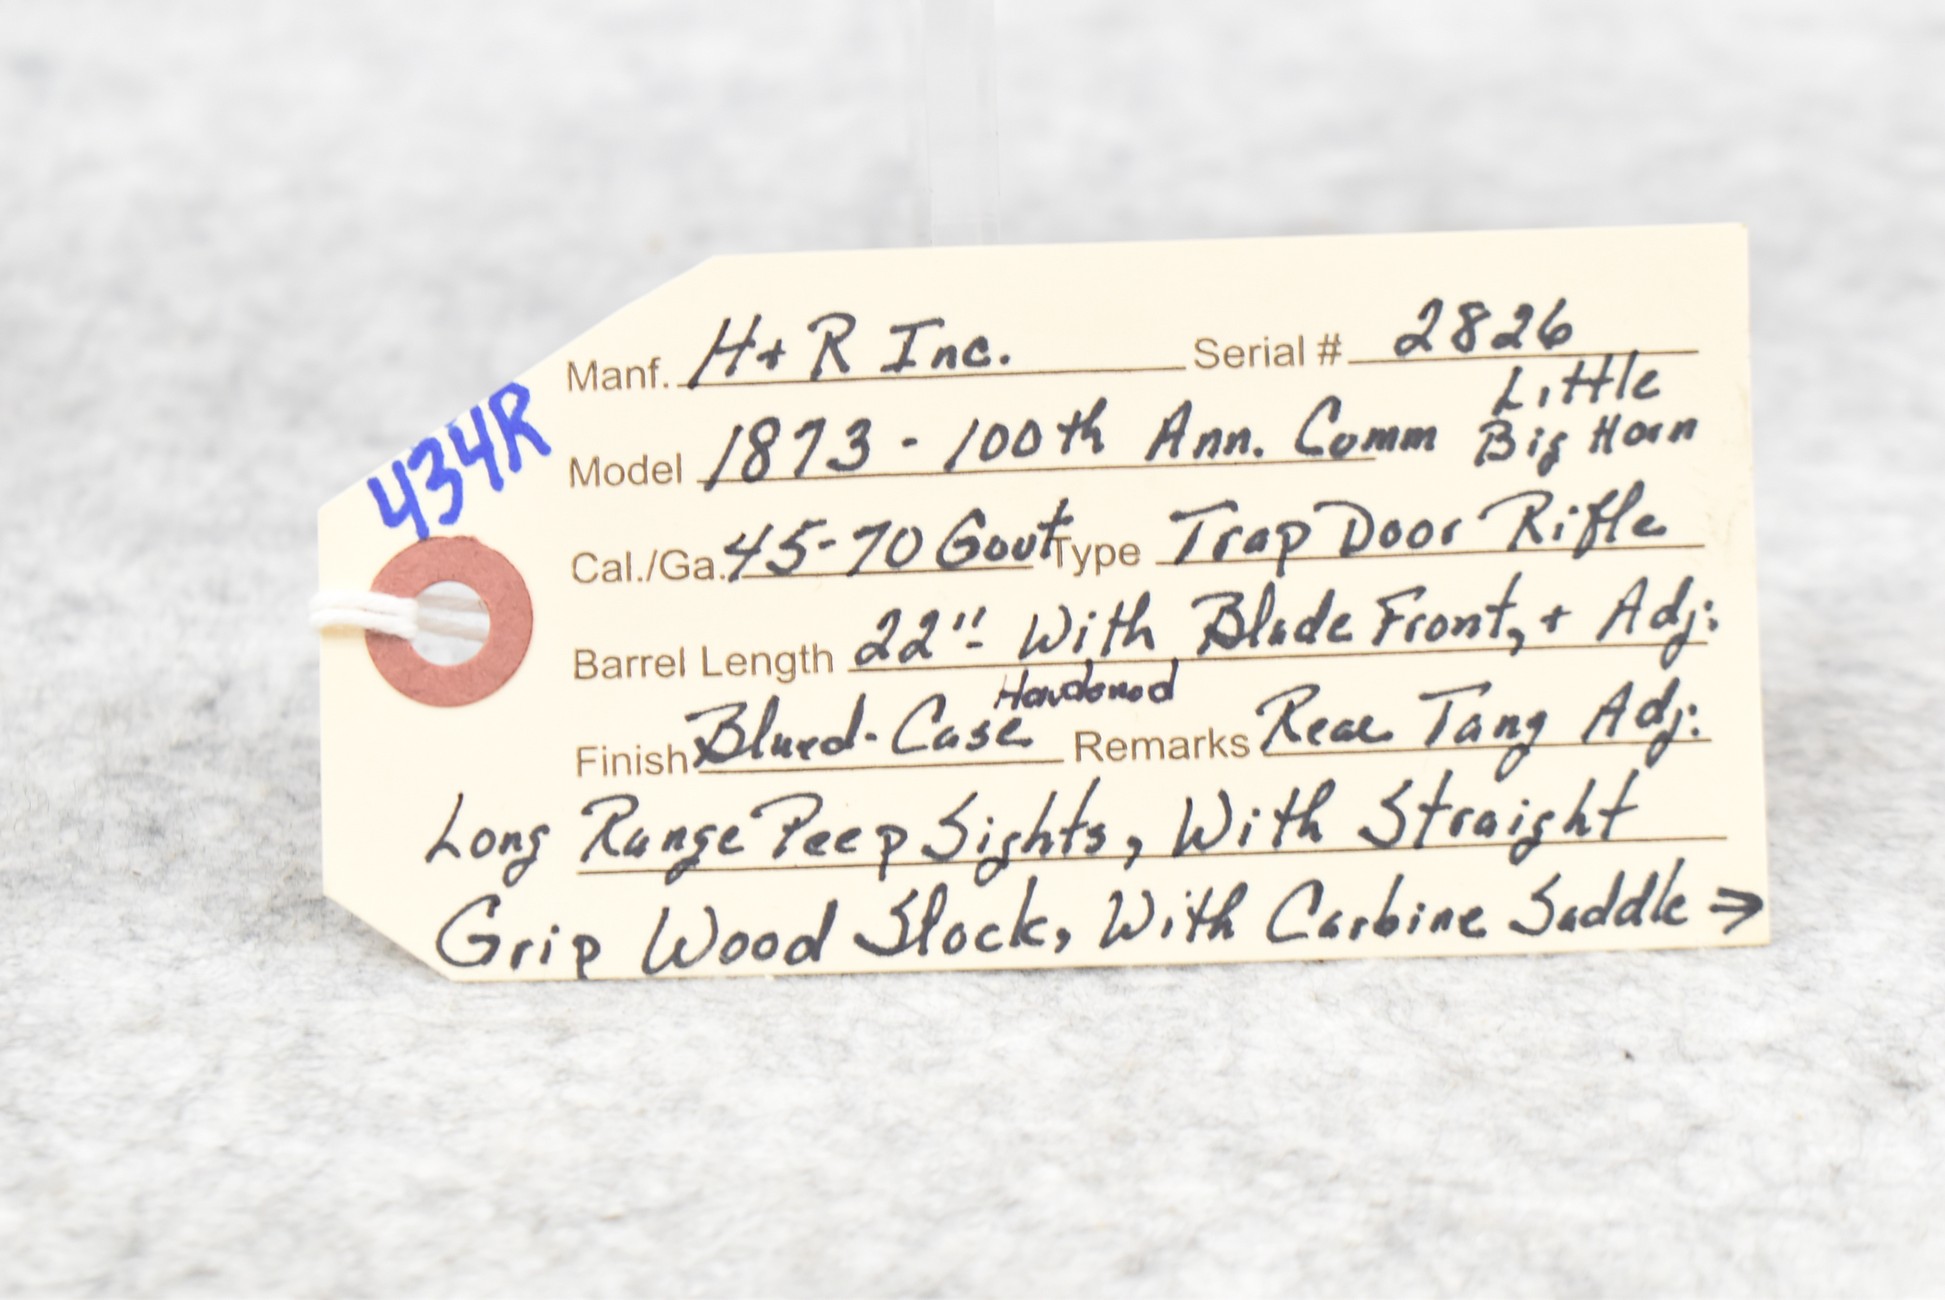 434R
Manf. H+R Inc. Serial # 2826
Model 1873 - 100th Ann. Comm Little Big Horn
Cal./Ga. 45-70 Gout Type Trap Door Rifle
Barrel Length 22"- With Blade Front, + Adj:
Finish Blued-Case Hardened Remarks Rear Tang Adj:
Long Range Peep Sights, With Straight
Grip Wood Stock, With Carbine Saddle →